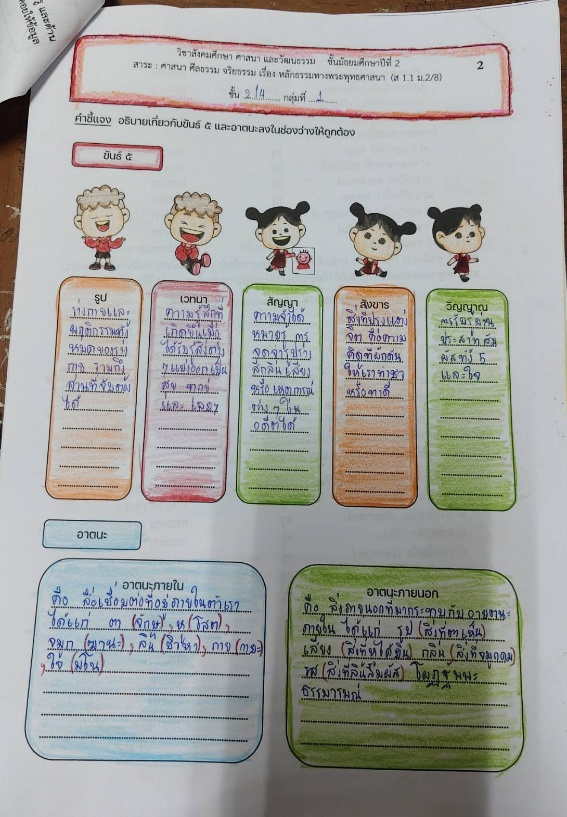 รู้ และด้าน
ตอบให้ข้อมูล
วิชาสังคมศึกษา ศาสนา และวัฒนธรรม ชั้นมัธยมศึกษาปีที่ 2
2
สาระ : ศาสนา ศีลธรรม จริยธรรม เรื่อง หลักธรรมทางพระพุทธศาสนา (ส 1.1 ม.2/8)
ชั้น 2/4 กลุ่มที่ 1
คำชี้แจง อธิบายเกี่ยวกับขันธ์ ๕ และอาตนะลงในช่องว่างให้ถูกต้อง
ขันธ์ ๕
รูป
ร่างกายและ
พฤติกรรมทั้ง
หมดของร่าง
กาย รวมถึง
ส่วนที่จับต้อง
ได้
เวทนา
ความรู้สึกที่
เกิดขึ้นเมื่อ
ได้รับรู้สิ่งต่าง
ๆแบ่งออกเป็น
สุข ทุกข์
และ เฉยๆ
สัญญา
ความจำได้
หมายรู้ การ
จดจำรูปร่าง
สีกลิ่นเสียง
หรือเหตุการณ์
ต่าง ๆ ใน
อดีตได้
สังขาร
สิ่งที่ปรุงแต่ง
จิต คือความ
คิดที่ผลักดัน
ให้เราทำชั่ว
หรือทำดี
วิญญาณ
การรับรู้ผ่าน
ประสาทสัม
ผัสทั้ง 5
และใจ
อาตนะ
อาตนะภายใน
คือ สื่อเชื่อมต่อที่อยู่ภายในตัวเรา
ได้แก่ ตา (จักษุ), หู (โสต),
จมูก (ฆานะ), ลิ้น (ชิวหา), กาย (กายะ)
, ใจ (มโน)
อาตนะภายนอก
คือ สิ่งภายนอกที่มากระทบกับอายตนะ
ภายใน ได้แก่ รูป (สิ่งที่ตาเห็น)
เสียง (สิ่งที่หูได้ยิน) กลิ่น (สิ่งที่จมูกดม)
รส (สิ่งที่ลิ้นสัมผัส) โผฏฐัพพะ
ธรรมารมณ์